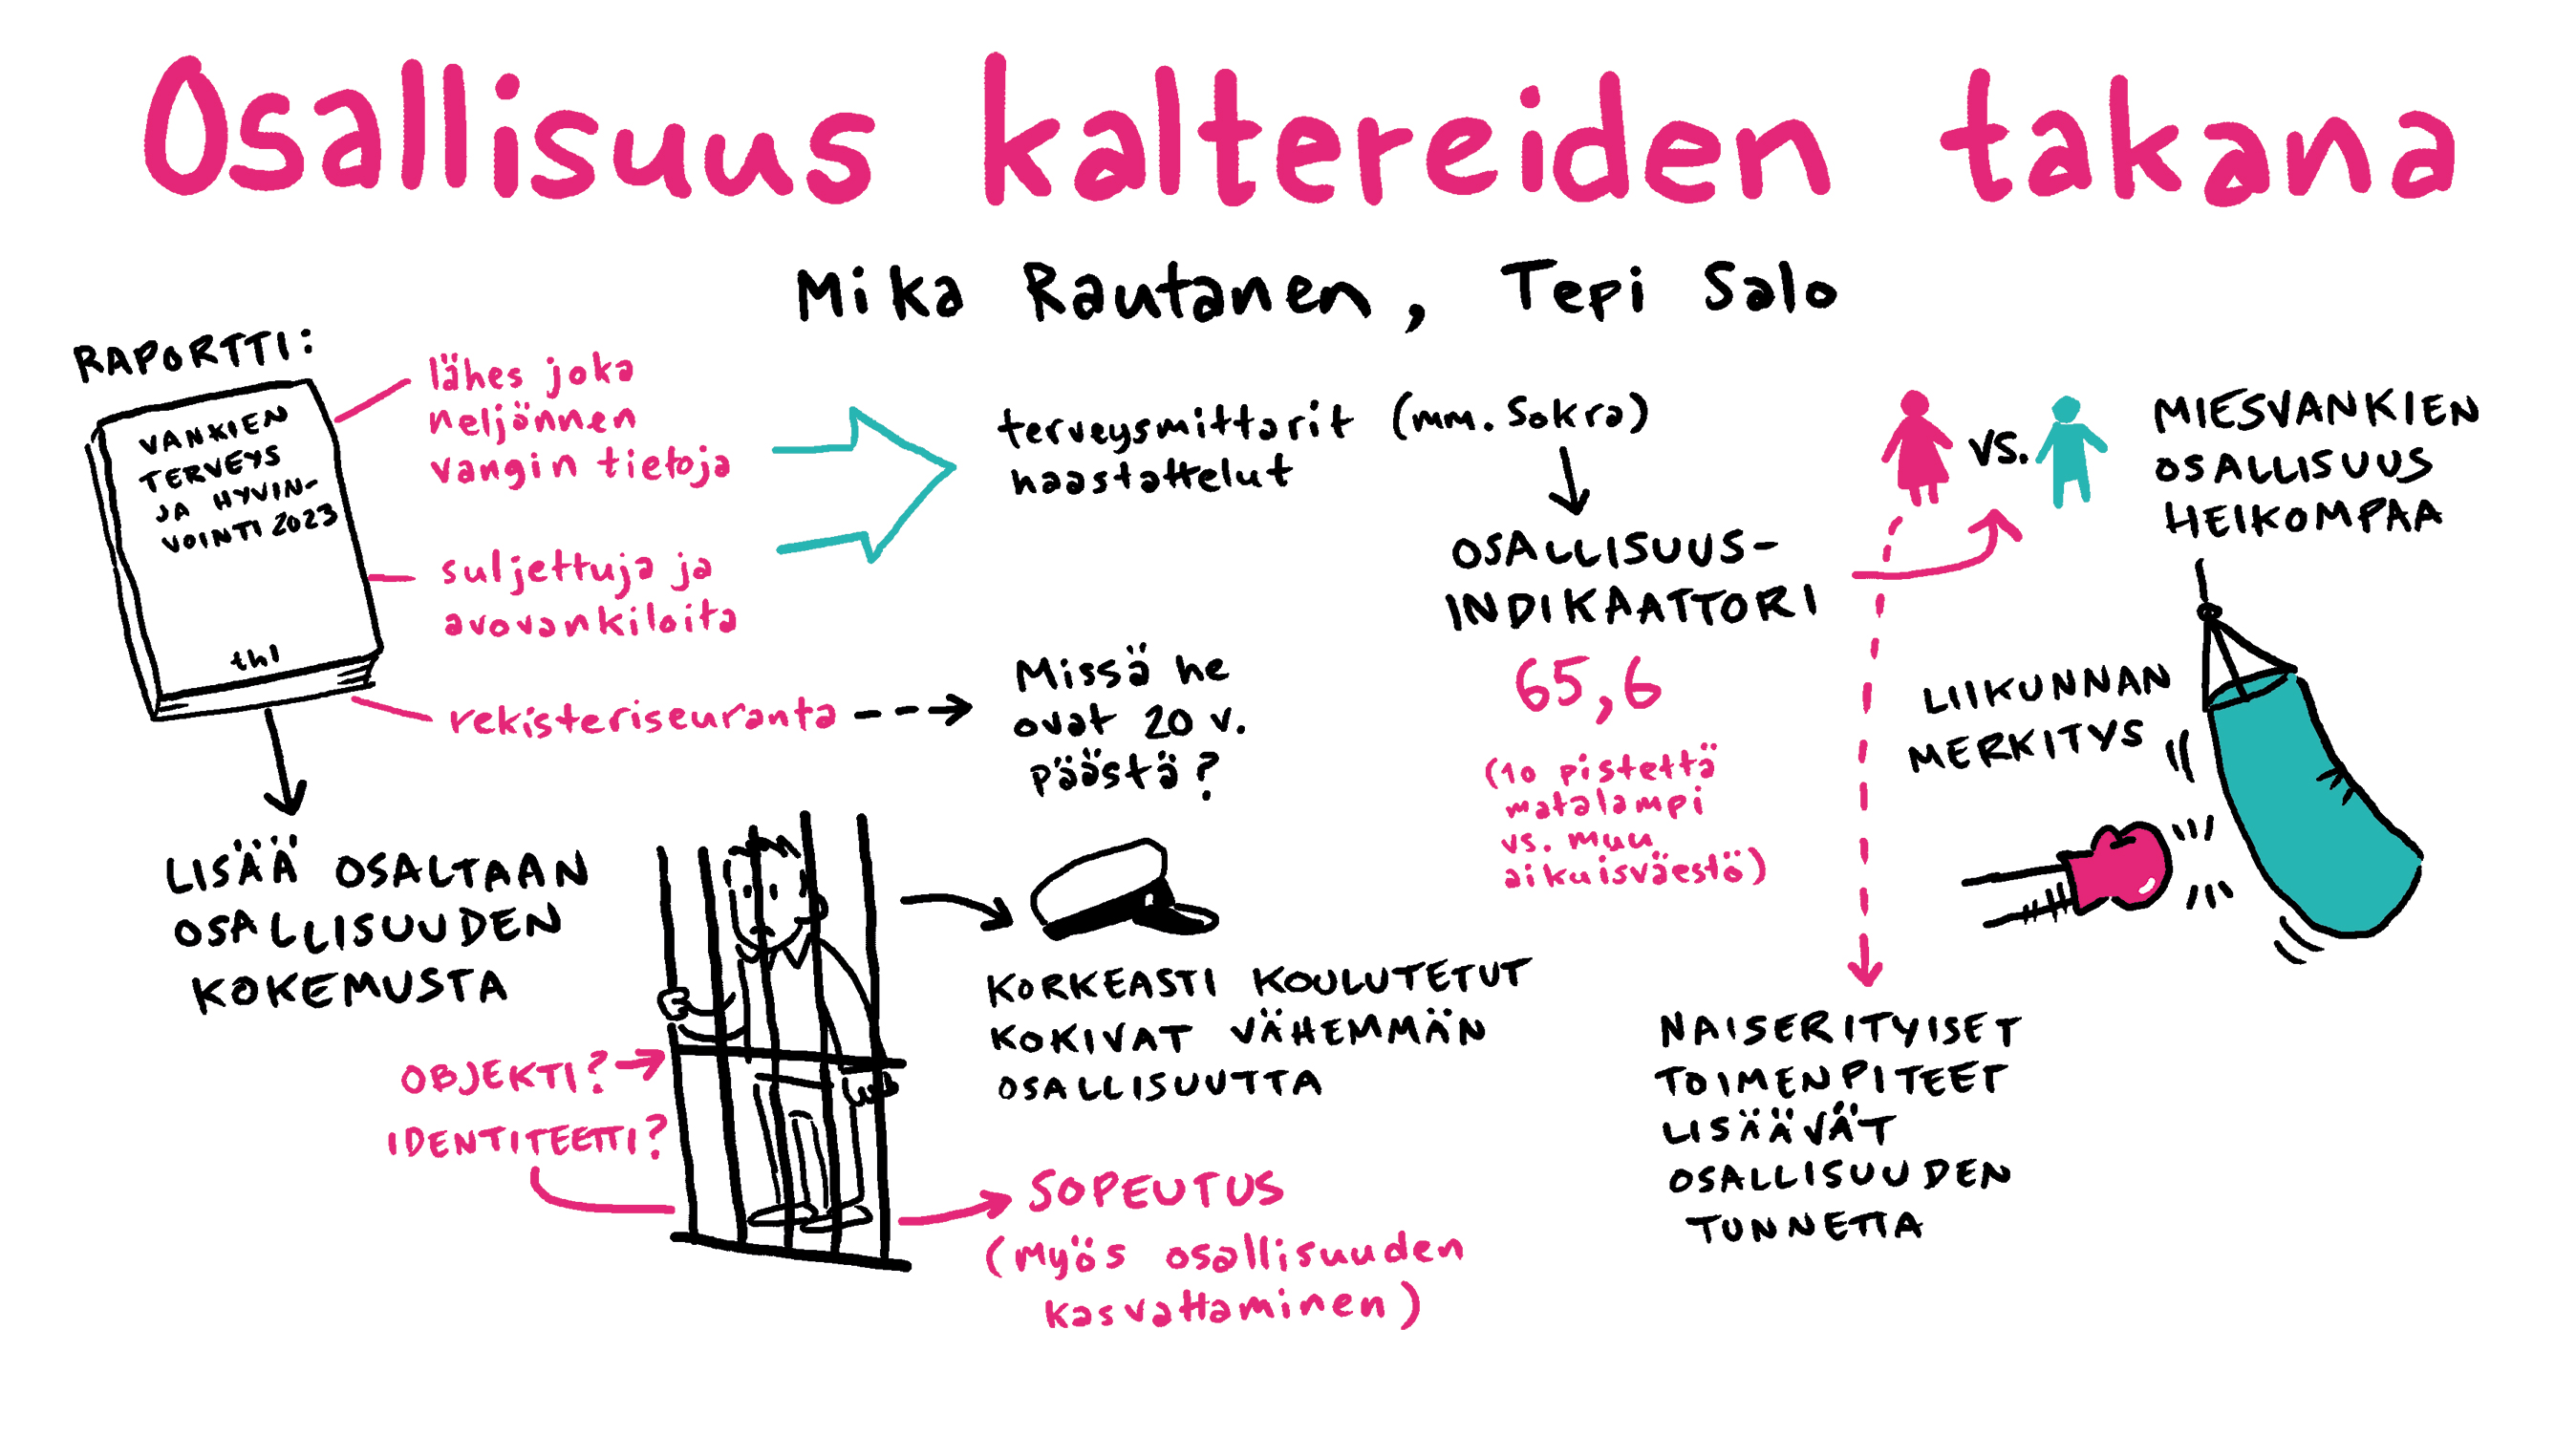 Osallisuus kaltereiden takana
Mika Rautanen, Tepi Salo
RAPORTTI:
VANKIEN
TERVEYS
JA HYVIN-
VOINTI 2023
thl
lähes joka
neljännen
vangin tietoja
suljettuja ja
avovankiloita
rekisteriseuranta
Missä he
ovat 20 v.
päästä?
terveysmittarit (mm. Sokra)
haastattelut
OSALLISUUS-
INDIKAATTORI
65,6
(10 pistettä
matalampi
vs. muu
aikuisväestö)
VS.
MIESVANKIEN
OSALLISUUS
HEIKOMPAA
LIIKUNNAN
MERKITYS
LISÄÄ OSALTAAN
OSALLISUUDEN
KOKEMUSTA
OBJEKTI?
IDENTITEETTI?
KORKEASTI KOULUTETUT
KOKIVAT VÄHEMMÄN
OSALLISUUTTA
SOPEUTUS
(myös osallisuuden
kasvattaminen)
NAISERITYISET
TOIMENPITEET
LISÄÄVÄT
OSALLISUUDEN
TUNNETTA